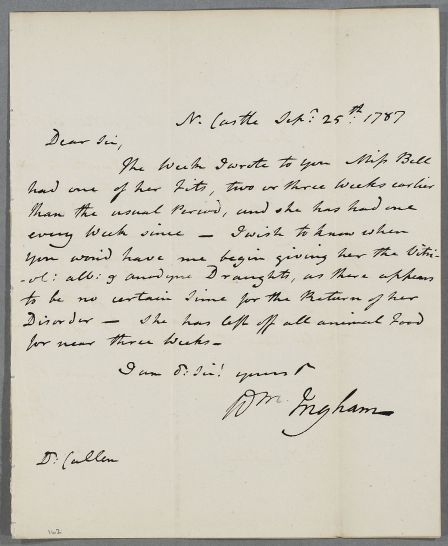 N. Castle Sepr: 25th: 1787
Dear Sir,
The Week I wrote to you Miss Bell
had one of her Fits, two or three Weeks earlier
than the usual Period, and she has had one
every Week since — I wish to know when
you would have me begin giving her the Vitri-
-ol: alb: & anodyne Draughts, as there appears
to be no certain Time for the Return of her
Disorder — She has left off all animal Food
for near three Weeks —
I am Dr: Sir! yours
Wm. Ingham
Dr: Cullen
162